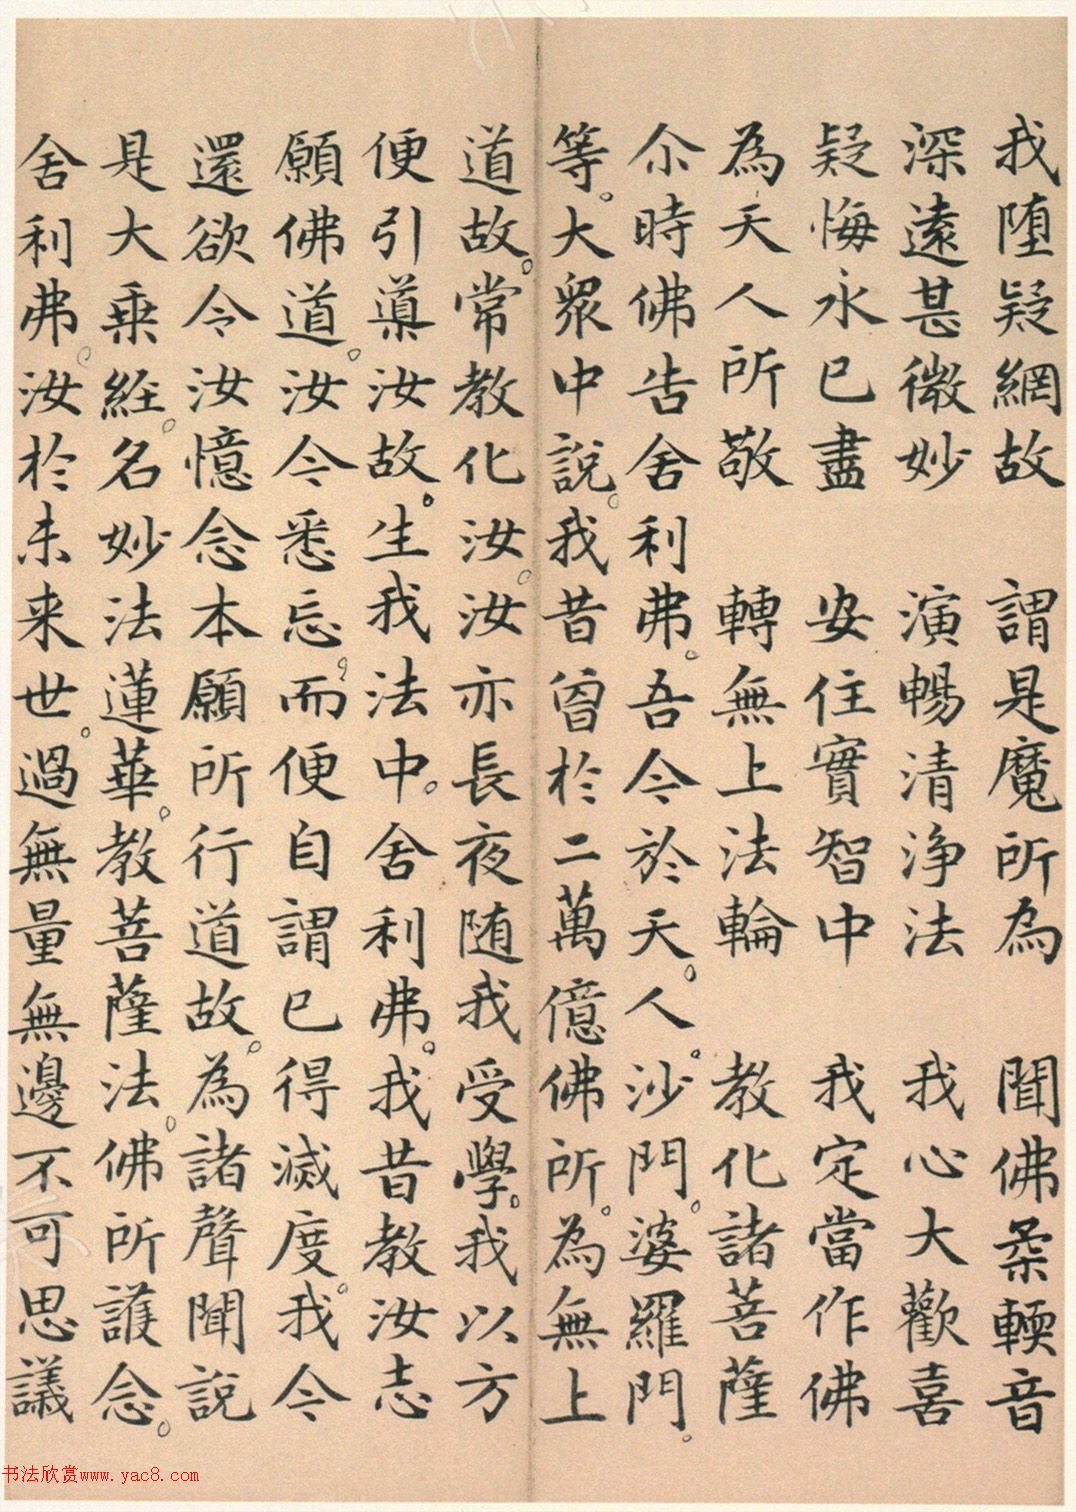 我堕疑網故 謂是魔所為 聞佛柔輭音
深遠甚微妙 演暢清淨法 我心大歡喜
疑悔永已盡 安住實智中 我定當作佛
為天人所敬 轉無上法輪 教化諸菩薩
尒時佛告舍利弗。吾今於天。人。沙門。婆羅門。
等。大眾中說。我昔曾於二萬億佛所。為無上
道故。常教化汝。汝亦長夜随我受學。我以方
便引導汝故。生我法中。舍利弗。我昔教汝志
願佛道。汝今悉忘。而便自謂已得滅度。我今
還欲令汝憶念本願所行道故。為諸聲聞說
是大乗經。名妙法蓮華。教菩薩法。佛所護念。
舍利弗。汝於未来世。過無量無邊不可思議
书法欣赏www.yac8.com